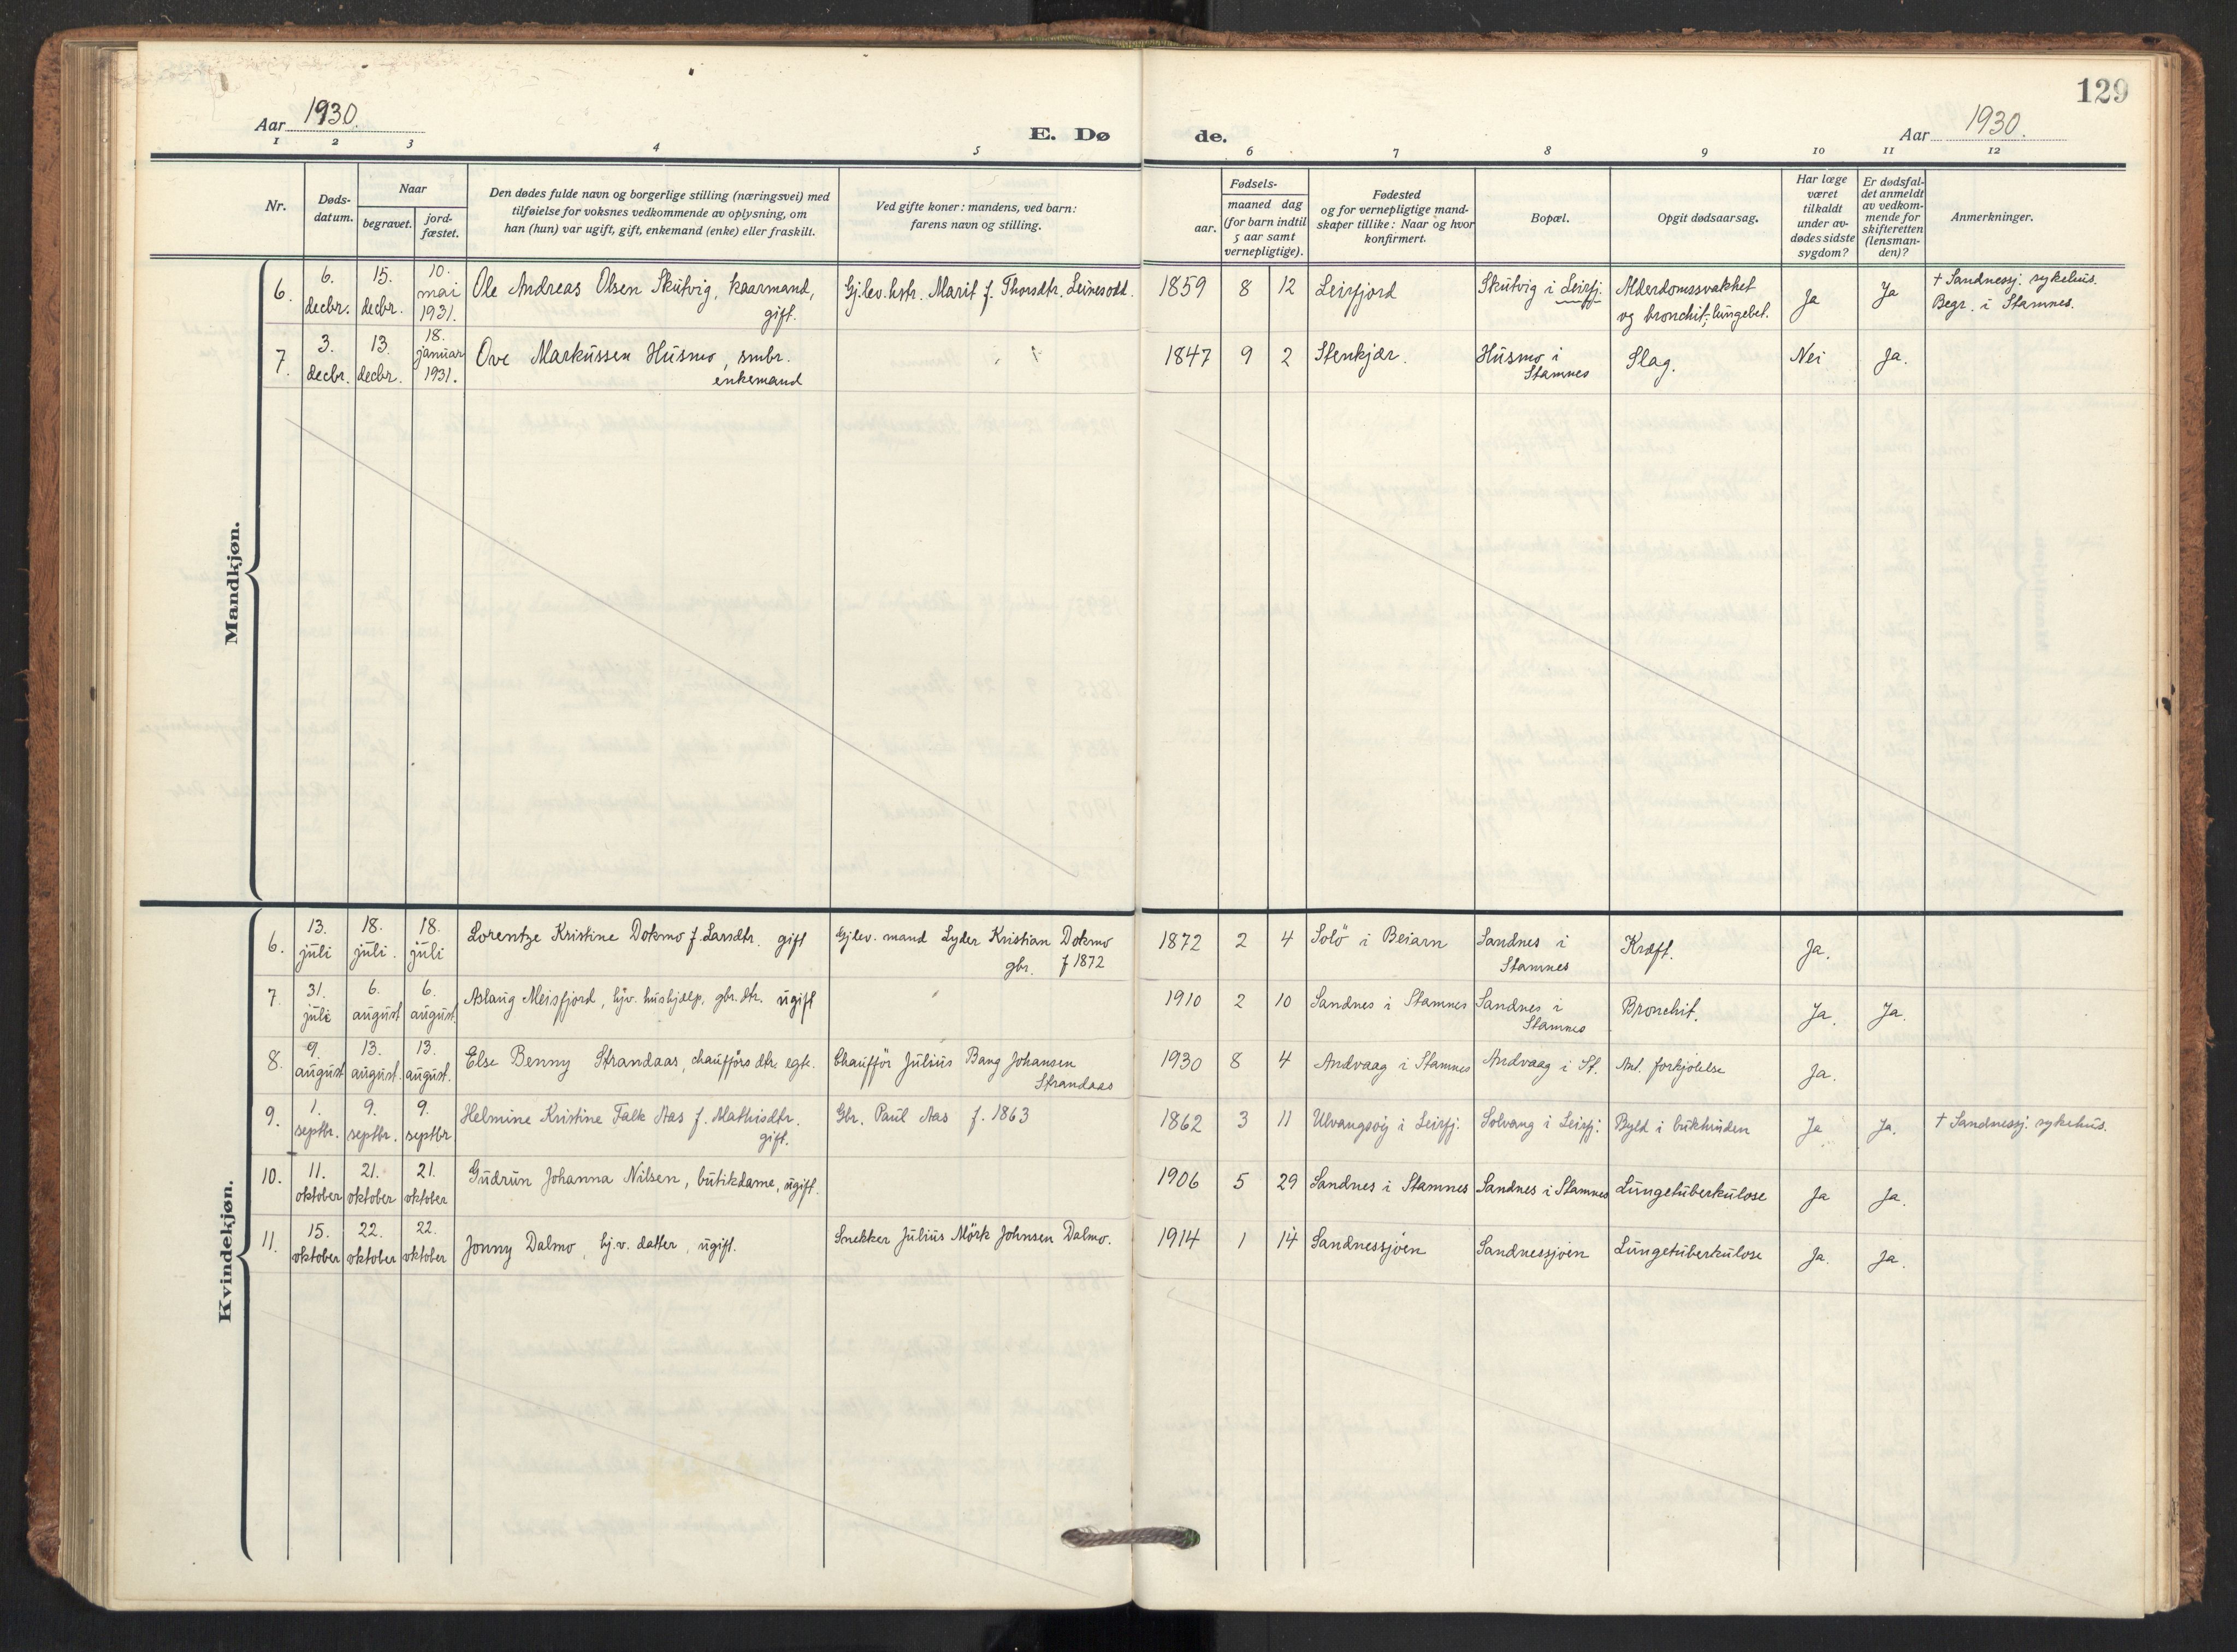 129
Aar 1930.
E. Dø de.
Aar 1930.
1 2 3 4 5 6 7 8 9 10 11 12
Nr.
Døds-
datum.
Naar
begravet.
jord-
fæstet.
Den dødes fulde navn og borgerlige stilling (næringsvei) med
tilføielse for voksnes vedkommende av oplysning, om
han (hun) var ugift, gift, enkemand (enke) eller fraskilt.
Ved gifte koner: mandens, ved barn:
farens navn og stilling.
Fødsels-
aar.
maaned dag
(for barn indtil
5 aar samt
vernepligtige).
Fødested
og for vernepligtige mand-
skaper tillike: Naar og hvor
konfirmert.
Bopæl.
Opgit dødsaarsag.
Har læge
været
tilkaldt
under av-
dødes sidste
sygdom?
Er dødsfal-
det anmeldt
av vedkom-
mende for
skifteretten
(lensman-
den)?
Anmerkninger.
Mandkjøn.
6.
6.
decbr.
15.
decbr.
10.
mai
1931.
Ole Andreas Olsen Skutvig, kaarmand,
gift.
Gj.lev. hstr. Marit f. Thorsdtr. Leinesodd.
1859 8 12
Leirfjord
Skutvig i Leirfj.
Alderdomssvakhet
og bronchit, lungebet.
Ja
Ja
+ Sandnessj. sykehus.
Begr. i Stamnes.
7.
3.
decbr.
13.
decbr.
18.
januar
1931.
Ove Markussen Husmo, smbr.
enkemand
1847 9 2
Stenkjær.
Husmo i
Stamnes
Slag.
Nei
Ja.
Kvindekjøn.
6.
13.
juli
18.
juli.
18.
juli
Lorentze Kristine Dokmo f. Larsdtr. gift
Gjlev. mand Lyder Kristian Dokmo
gbr. f 1872
1872 2 4
Solö i Beiarn
Sandnes i
Stamnes
Kræft.
Ja.
7.
31.
juli
6.
august
6.
august.
Aslaug Meisfjord, hjv. hushjælp, gbr. dtr. ugift
1910 2 10
Sandnes i Stamnes
Sandnes i
Stamnes
Bronchit.
Ja.
Ja.
8.
9.
august
13.
august.
13.
august.
Else Benny Strandaas, chauffjörs dtr. egte.
Chaufför Julius Bang Johansen
Strandaas
1930 8 4
Andvaag i Stamnes
Andvaag i St.
Ant. forkjölelse
Ja.
9.
1.
septbr.
9.
septbr.
9.
septbr
Helmine Kristine Falk Aas f. Mathisdtr.
gift.
Gbr. Paul Aas f. 1863
1862 3 11
Ulvangsöy i Leirfj.
Solvang i Leirfj.
Byld i bukhinden
Ja
Ja.
+ Sandnessj. sykehus.
10.
11.
oktober
21.
oktober
21.
oktober
Gudrun Johanna Nilsen, butikdame, ugift.
1906 5 29
Sandnes i Stamnes
Sandnes i Stamnes
Lungetuberkulose
Ja
Ja.
11.
15.
oktober
22.
oktober
22.
oktober
Jonny Dalmo, hj.v. datter, ugift.
Snekker Julius Mörk Johnsen Dalmo.
1914 1 14
Sandnessjöen
Sandnessjöen
Lungetuberkulose
Ja.
Ja.